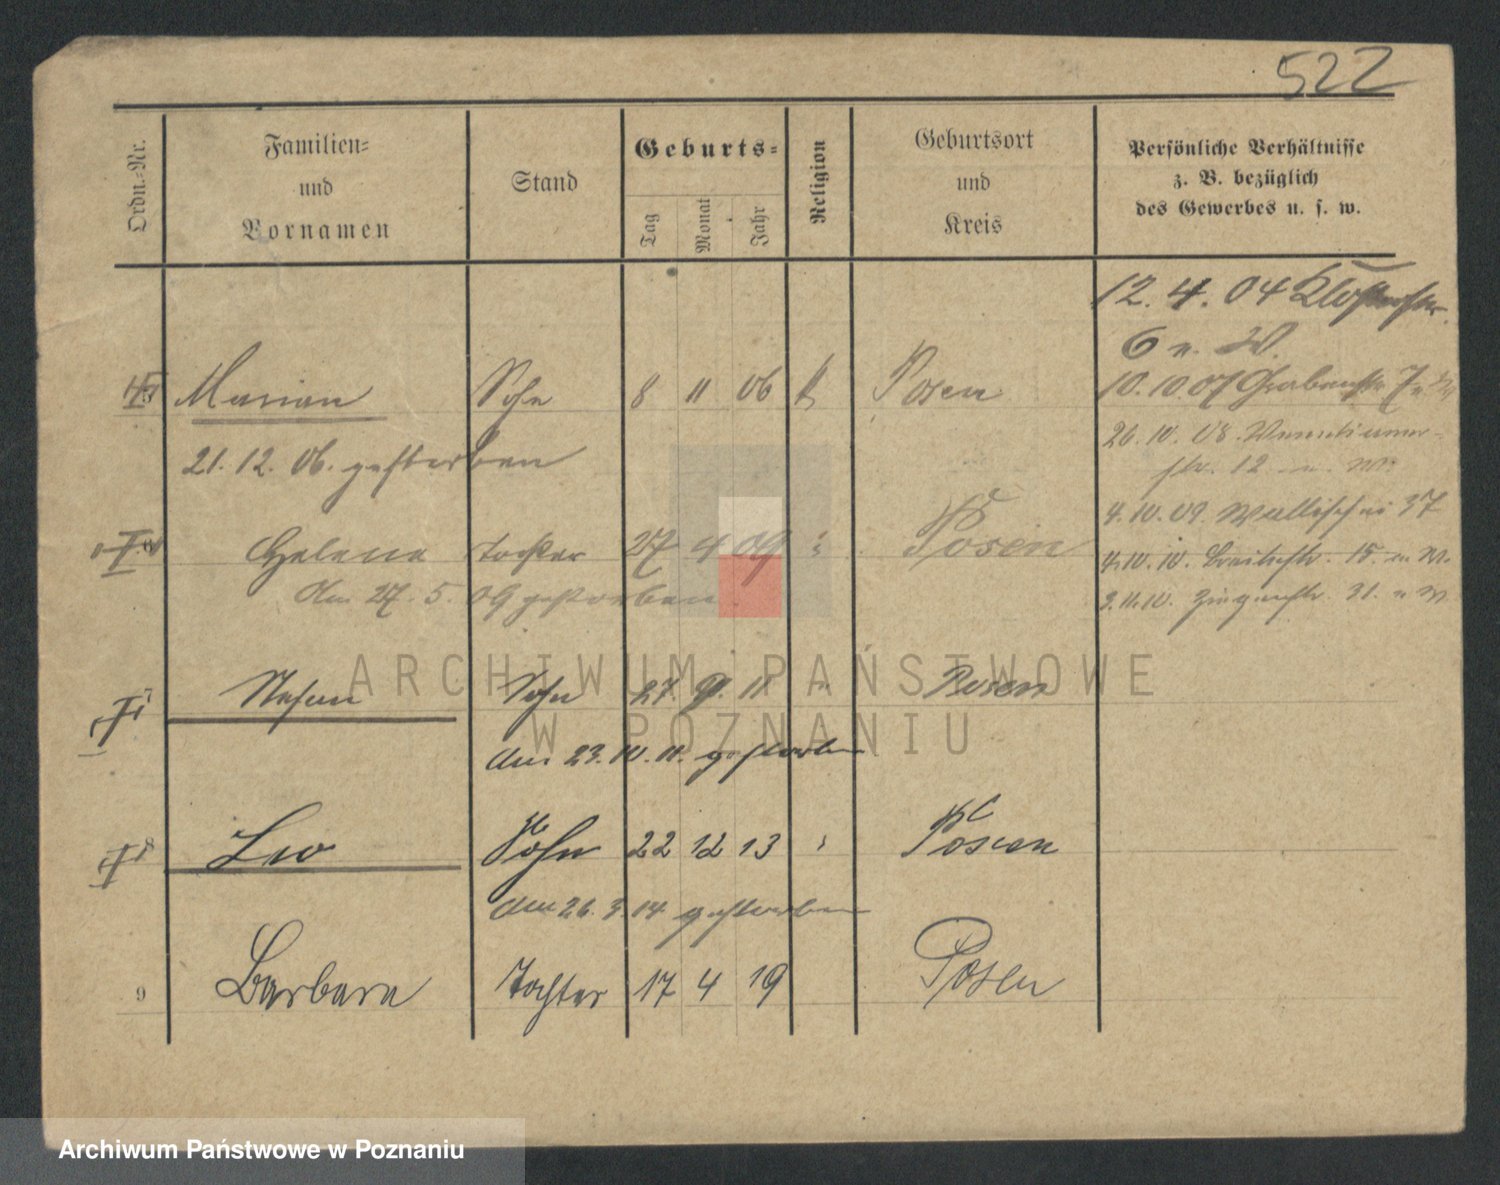 522
Ordn.-Nr.
Familien-
und
Vornamen
Stand
Geburts-
Tag
Monat
Jahr
Religion
Geburtsort
und
Kreis
Persönliche Verhältnisse
z. B. bezüglich
des Gewerbes u. s. w.
12. 4. 04 Klosterstr.
6 n. W.
5 Marian Sohn 8 11 06 k Posen
10.10 07 Grabenstr 7
21. 12. 06. gestorben
26. 10. 08.
str. 12 n. W.
4. 10. 09 Wallischei 37
6 Helene Tochter 27 4 09 " Posen
4.10.10. Breitestr. 15. n W.
Am 27. 5. 09 gestorben
3.11.10. Ziegenstr. 21. n W
ARCHIWUM PAŃSTWOWE
W POZNANIU
7 Stefan Sohn 27. 9. 11 " Posen
am 23. 10. 11. gestorben
8 Leo Sohn 22 12 13 " Posen
am 26. 3 14 gestorben
9 Barbara Tochter 17 4 19 Posen
Archiwum Państwowe w Poznaniu